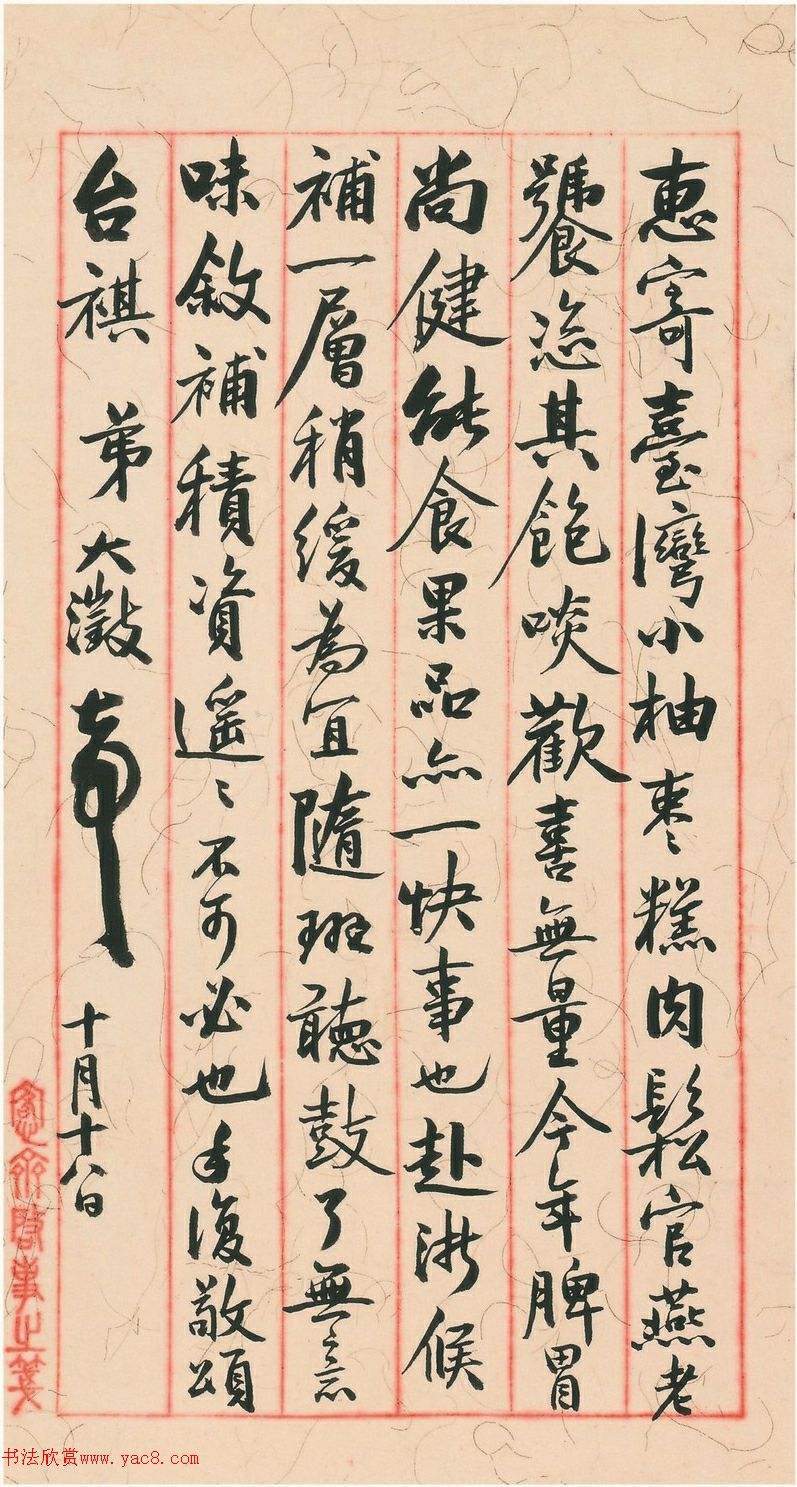 惠寄臺灣小柚棗糕肉鬆官燕老
饕恣其飽啖歡喜無量今年脾胃
尚健能食果品亦一快事也赴浙候
補一層稍緩為宜隨班聽鼓了無意
味敘補積資遥〻不可必也手復敬頌
台祺 弟大澂 十月十八日
愙齋啓事之箋
书法欣赏www.yac8.com